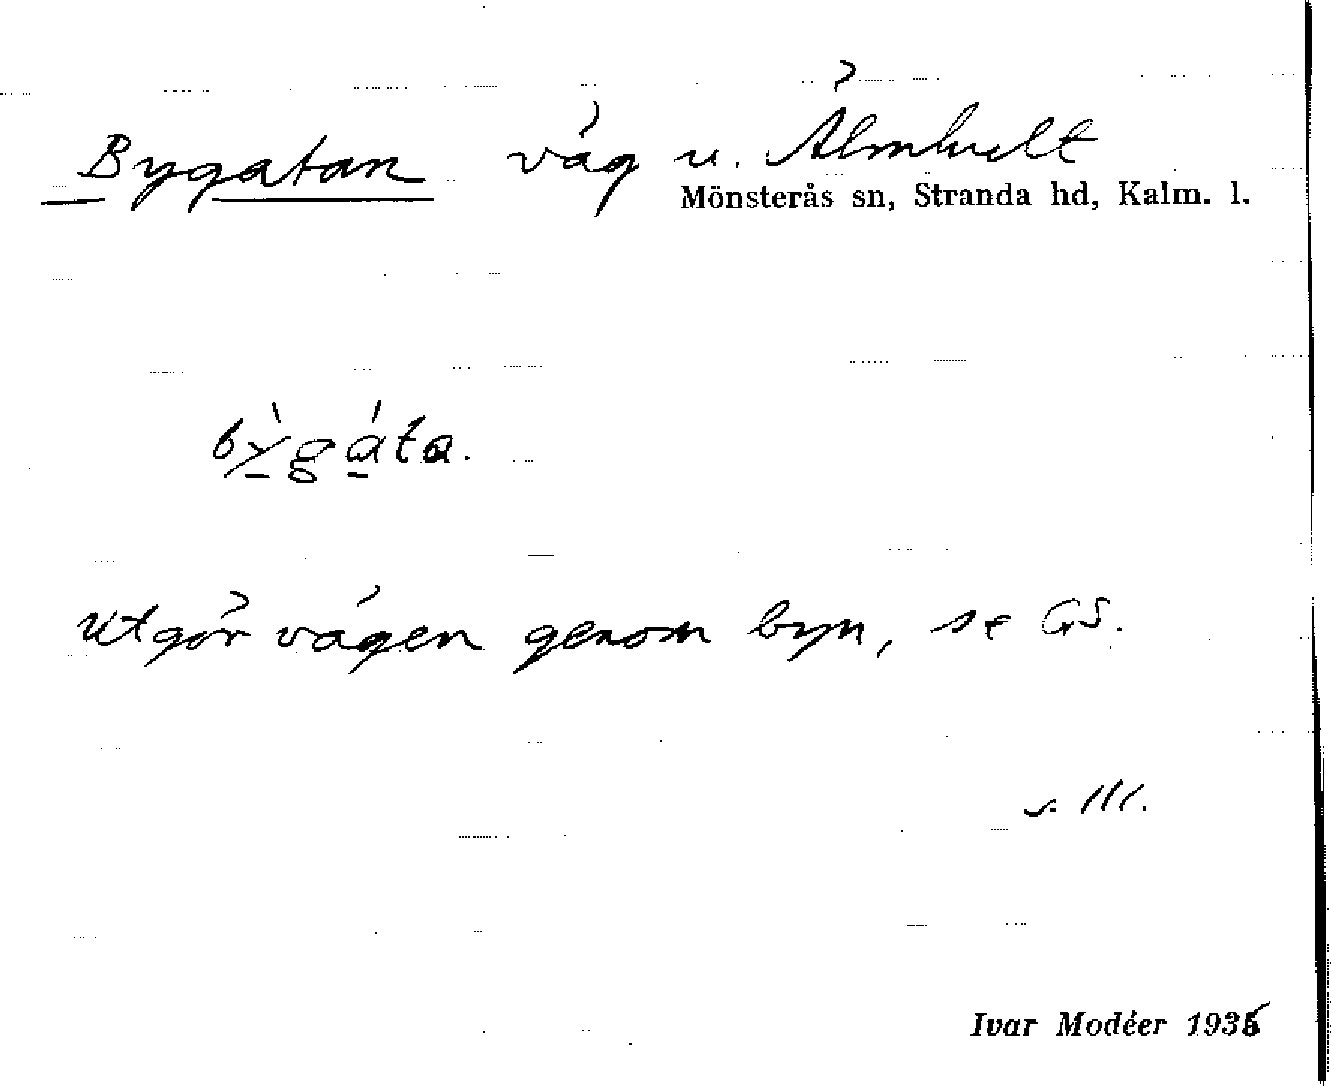 Bygatan väg u. Älmhult
Mönsterås sn, Stranda hd, Kalm. l.
bỳgáta.
Utgör vägen genom byn, se GS.
s. III.
Ivar Modéer 193